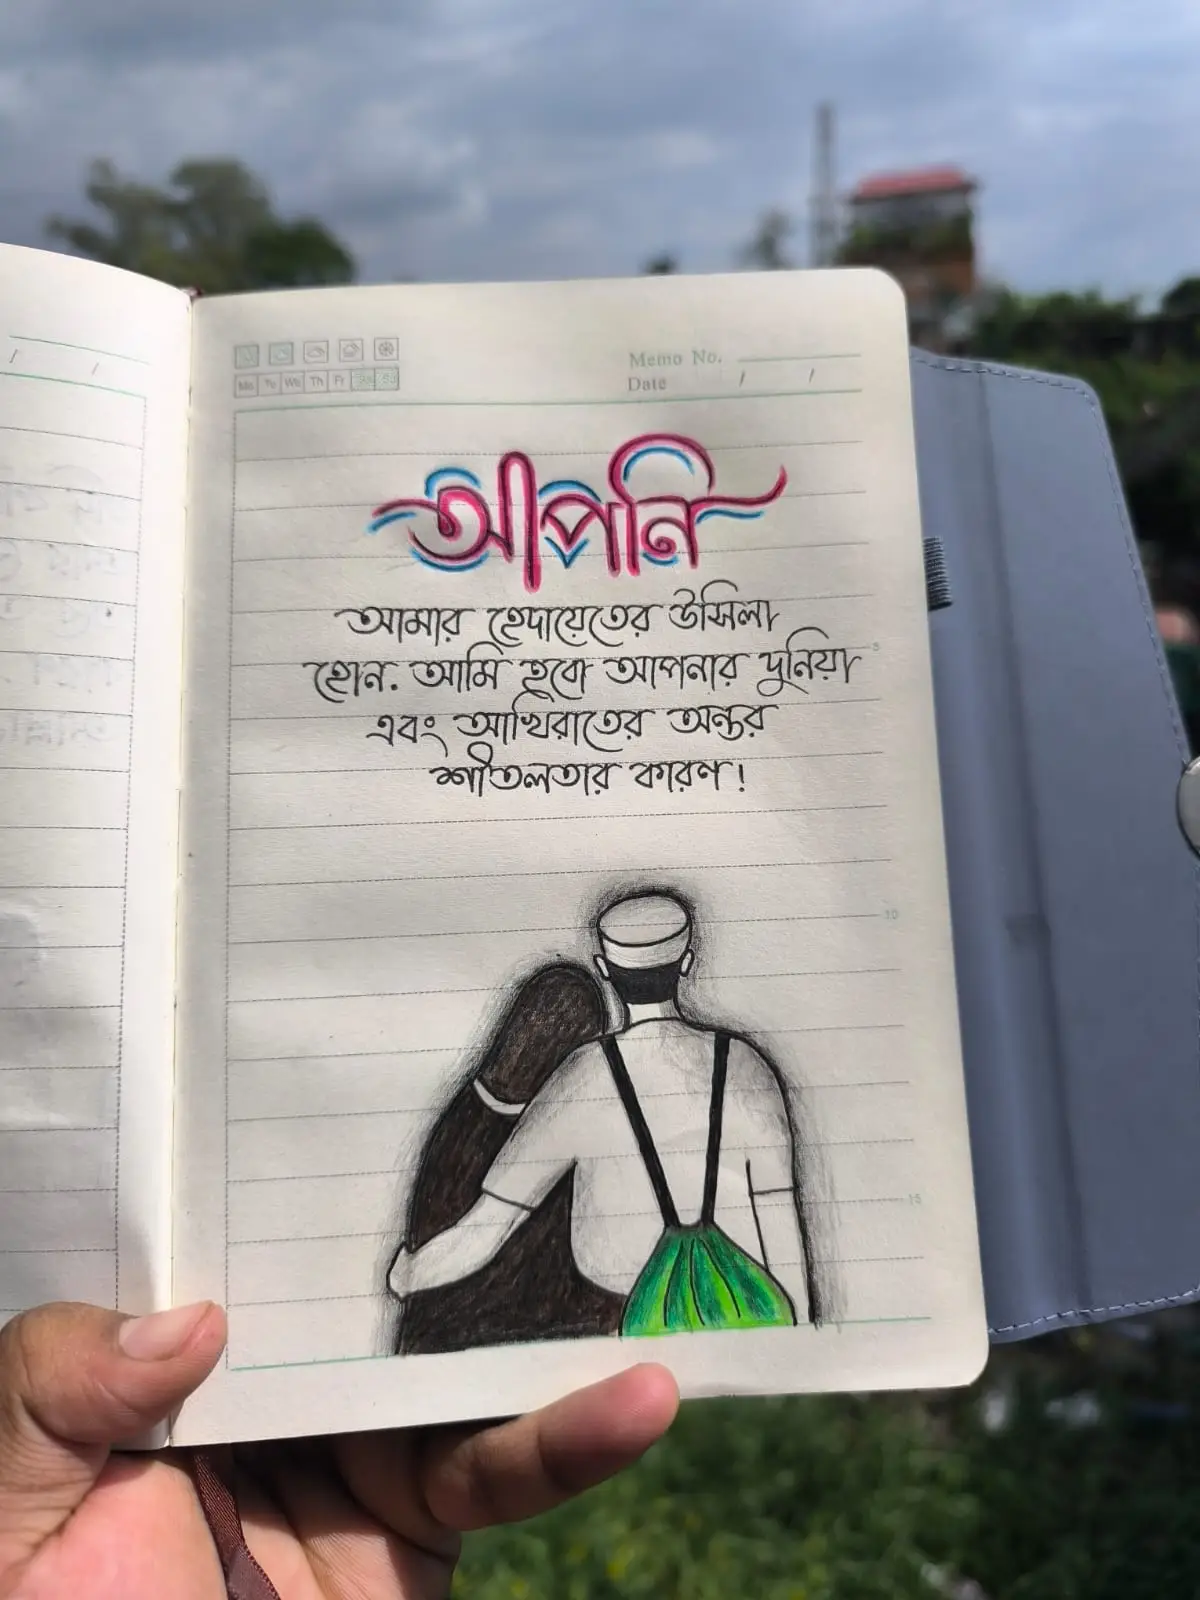 Memo No.
Mo Tu We Th Fr Sa Su
Date / /
আপনি
আমার হেদায়েতের উসিলা
হোন. আমি হবো আপনার দুনিয়া
এবং আখিরাতের অন্তর
শীতলতার কারণ!
5
10
15